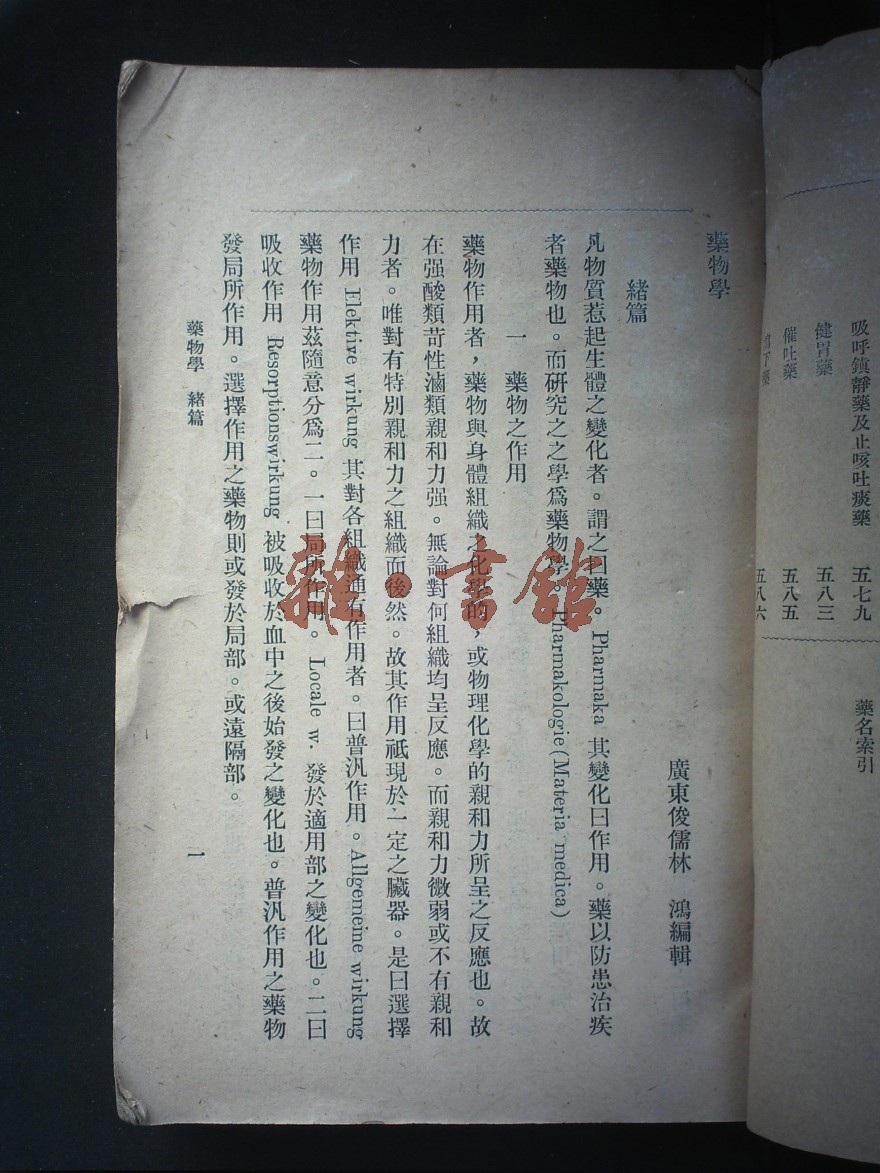 吸呼鎮靜藥及止咳吐痰藥 五七九
健胃藥 五八三
催吐藥 五八五
下藥 五八六
藥名索引
藥物學
廣東俊儒林 鴻編輯
緒篇
凡物質惹起生體之變化者。謂之曰藥。Pharmaka 其變化曰作用。藥以防患治疾
者藥物也。而研究之之學爲藥物學。Pharmakologie(Materia medica)
一 藥物之作用
藥物作用者，藥物與身體組織之化學的，或物理化學的親和力所呈之反應也。故
在强酸類苛性滷類親和力强。無論對何組織均呈反應。而親和力微弱或不有親和
力者。唯對有特別親和力之組織而後然。故其作用祇現於一定之臟器。是曰選擇
作用 Elektive wirkung 其對各組織通有作用者。曰普汎作用。Allgemeine wirkung
藥物作用茲隨意分爲二。一曰局所作用。Locale w. 發於適用部之變化也。二曰
吸收作用 Resorptionswirkung 被吸收於血中之後始發之變化也。普汎作用之藥物
發局所作用。選擇作用之藥物則或發於局部。或遠隔部。
藥物學 緒篇 一
雜·書館